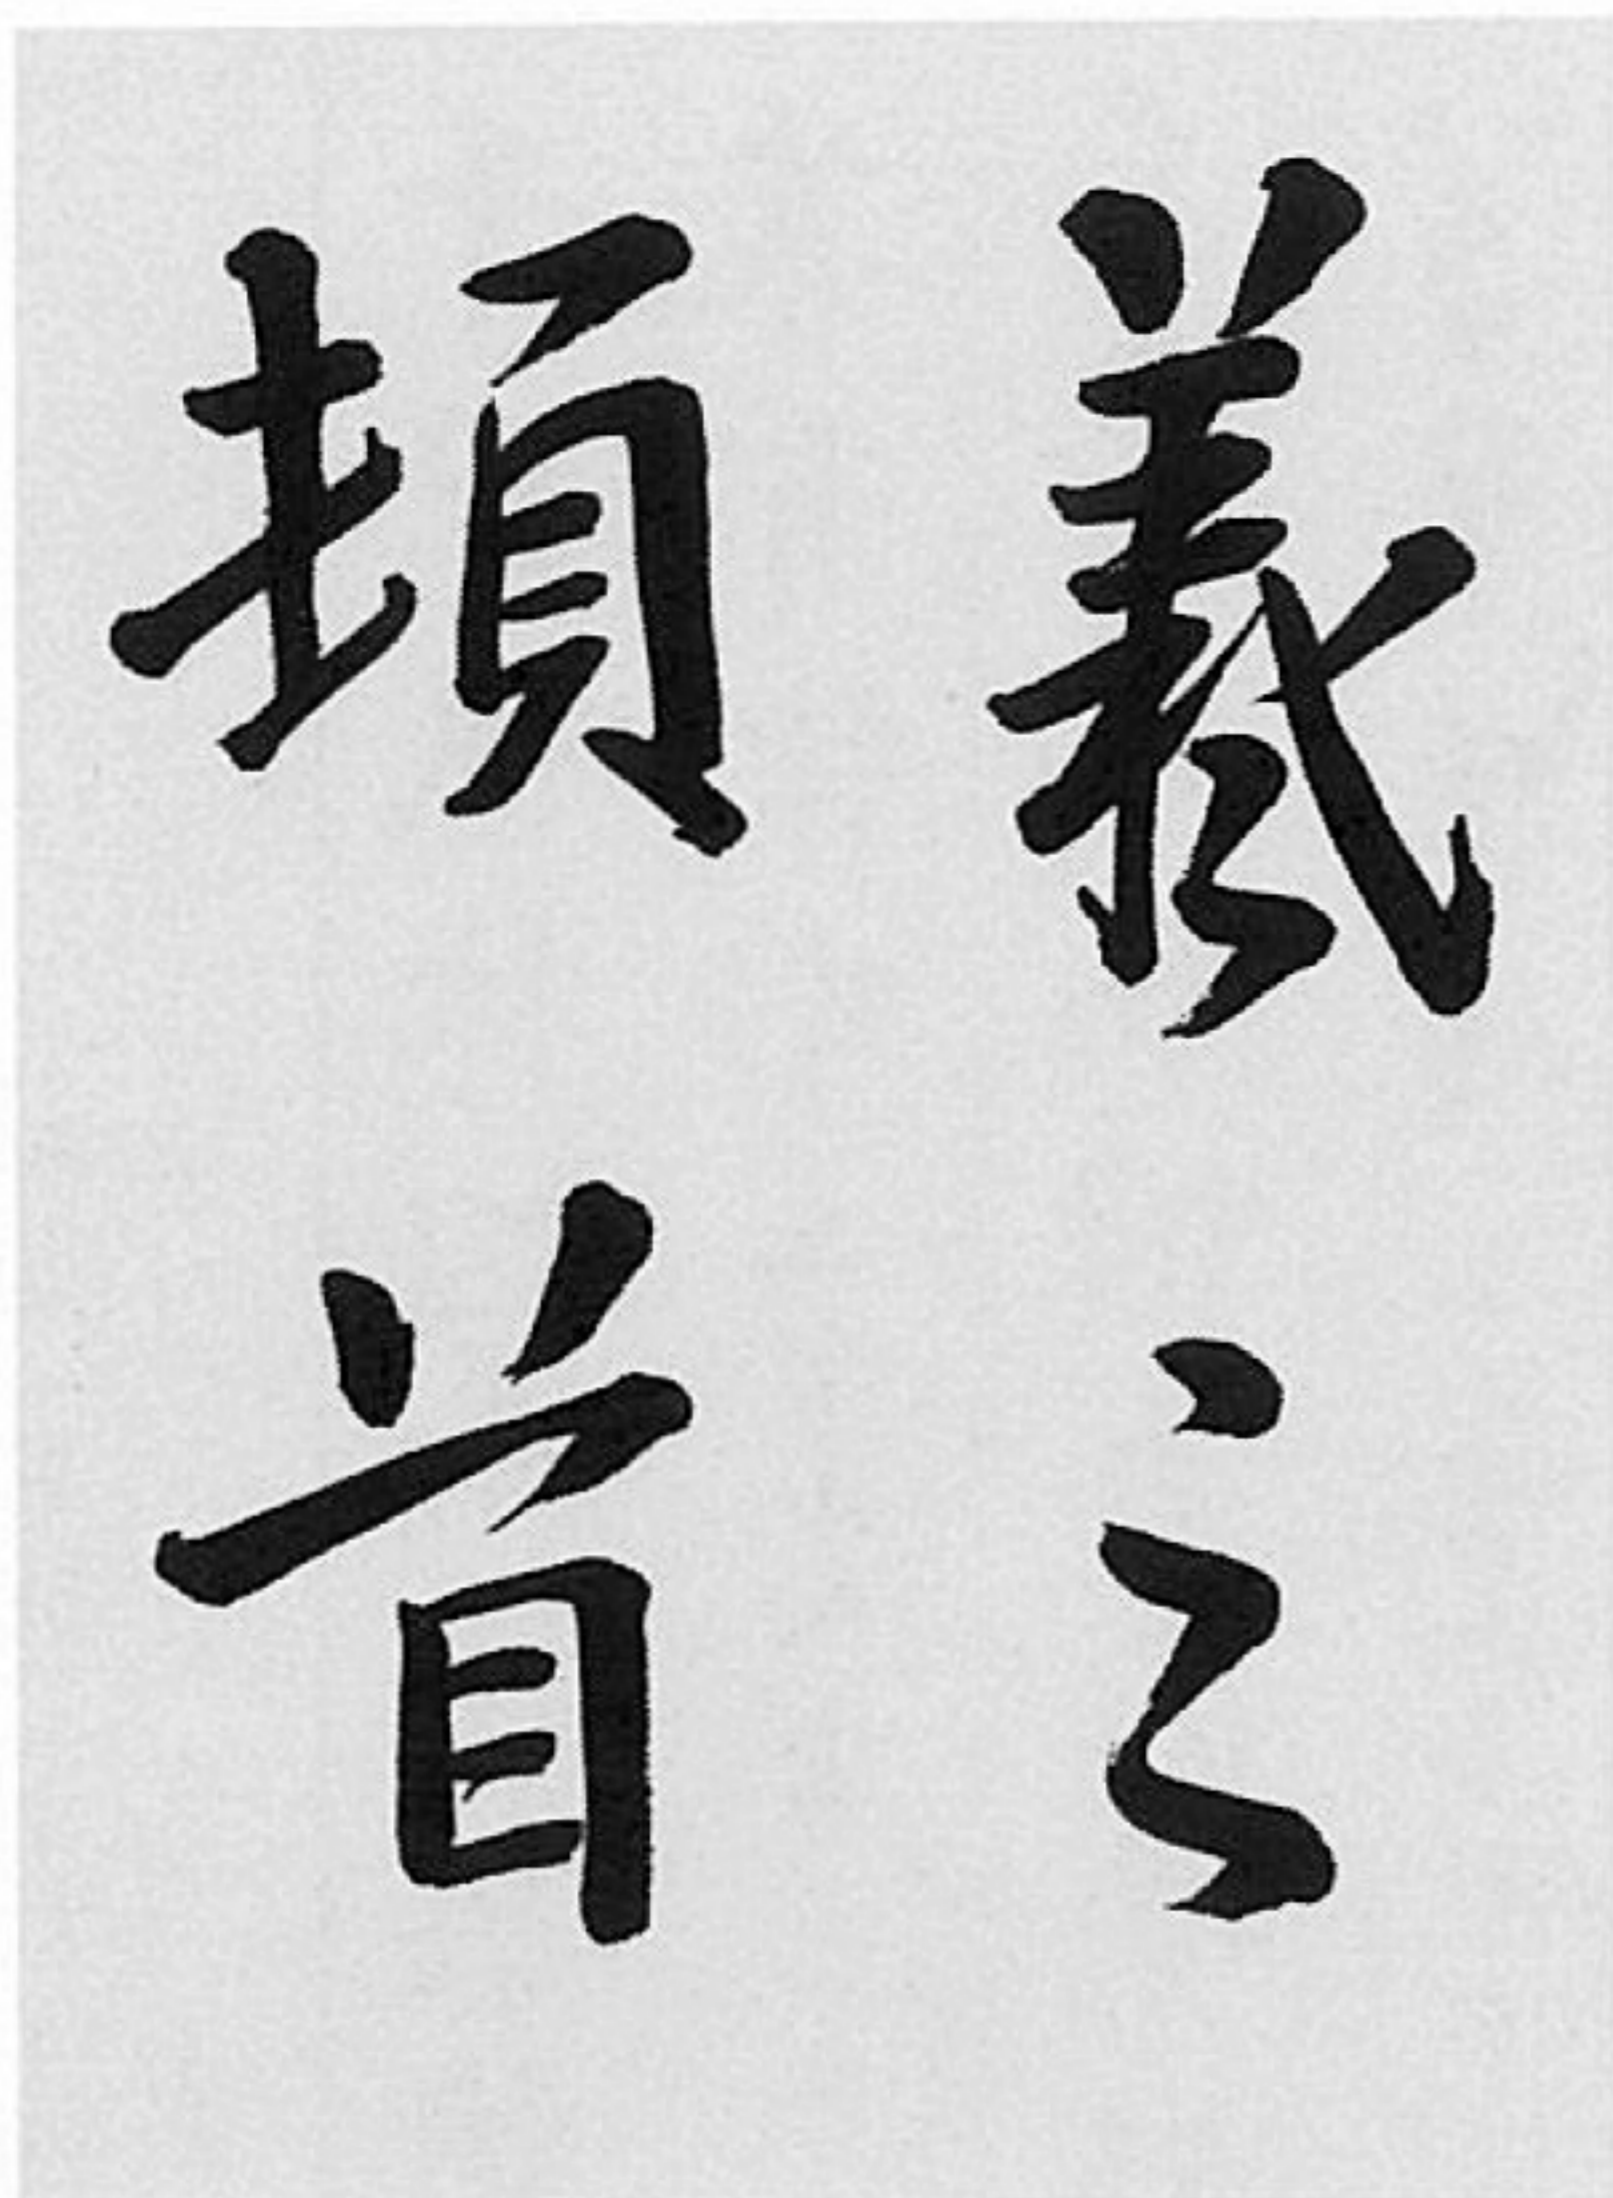 羲之
頓首